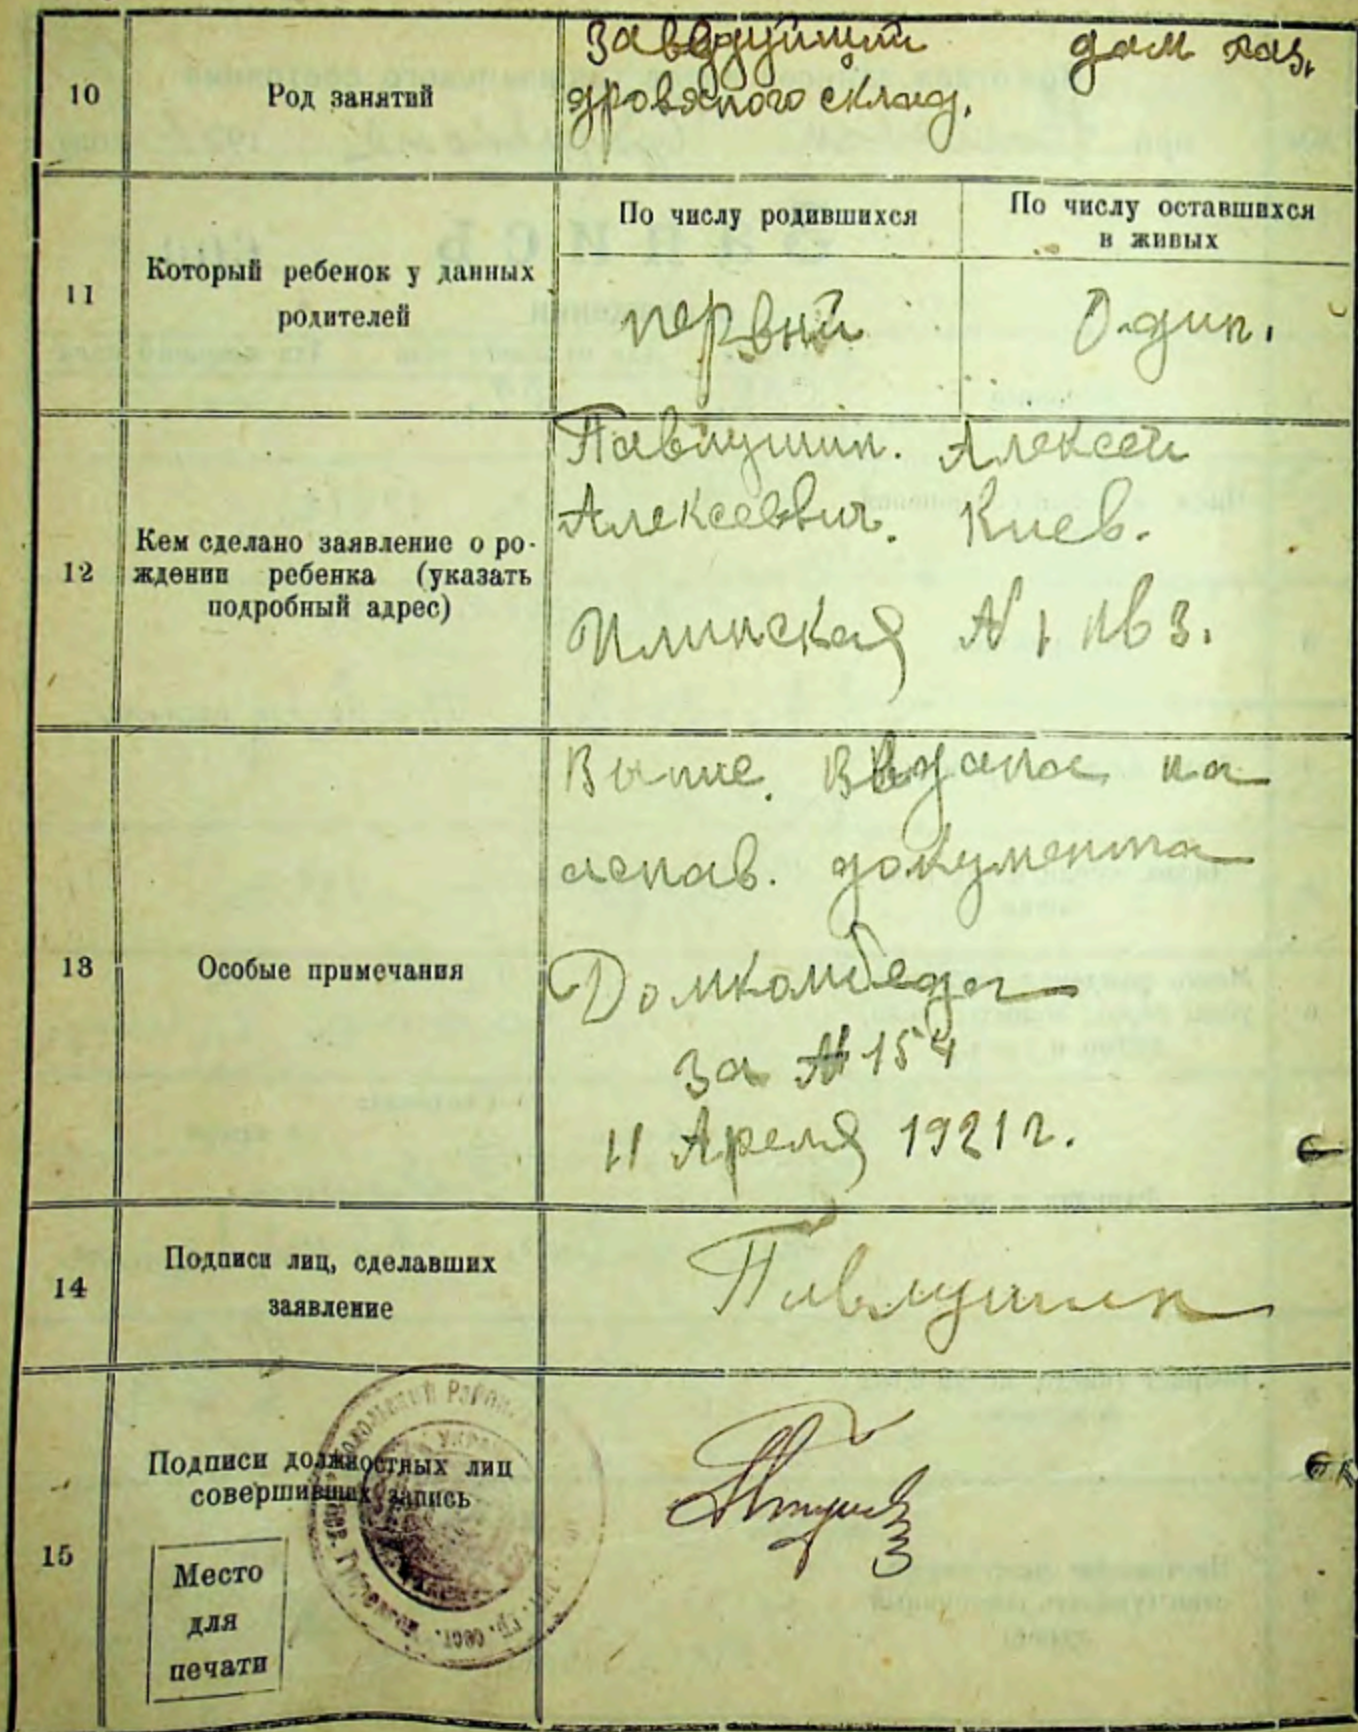 10
Род занятий
Заведующий дом хоз,
дровяного склад.
11
Который ребенок у данных
родителей
По числу родившихся
По числу оставшихся
в живых
первый
Один.
12
Кем сделано заявление о ро-
ждении ребенка (указать
подробный адрес)
Павлушин. Алексей
Алексеевич. Киев.
Илинская № 1 кв 3.
13
Особые примечания
на
документа
Домкомбеда
за № 154
11 Апреля 1921 г.
14
Подписи лиц, сделавших
заявление
Павлушин
15
Подписи должностных лиц
совершивших запись
Место
для
печати